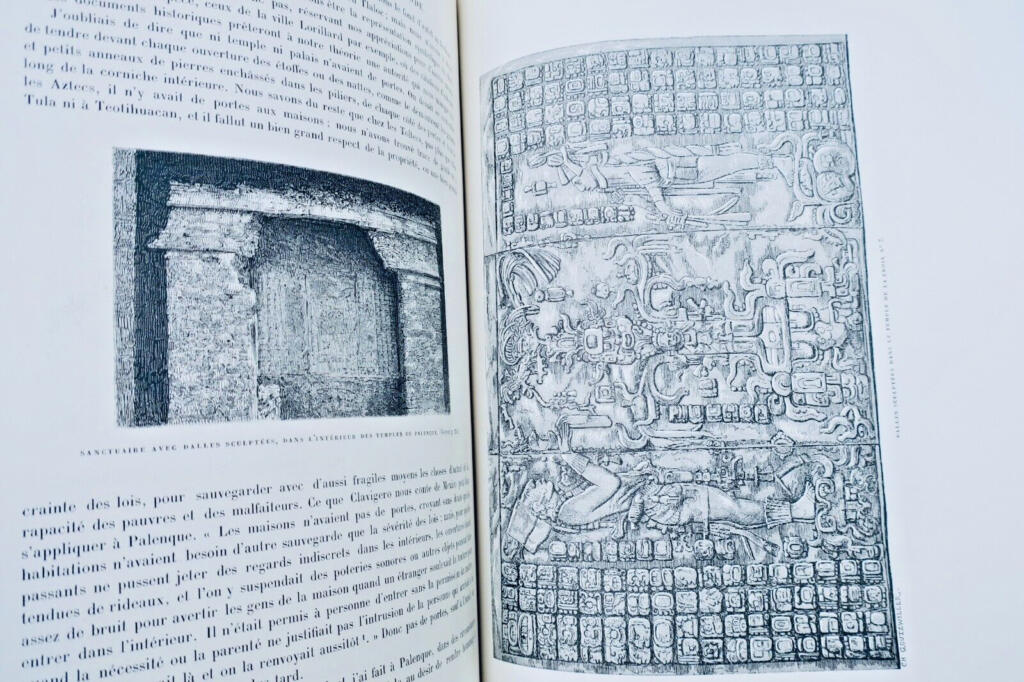 documents historiques prêteront à notre théorie une autorité
J'oubliais de dire que ni temple ni palais n'avaient de portes.
de tendre devant chaque ouverture des étoffes ou des nattes, comme le
et petits anneaux de pierres enchâssés dans les piliers, de chaque côté
long de la corniche intérieure. Nous savons du reste que chez les
les Aztecs, il n'y avait de portes aux maisons ; nous n'avons trouvé trace de
Tula ni à Teotihuacan, et il fallut un bien grand respect de la propriété, ou une
SANCTUAIRE AVEC DALLES SCULPTÉES, DANS L'INTÉRIEUR DES TEMPLES DE PALENQUE.
crainte des lois, pour sauvegarder avec d'aussi fragiles moyens les choses
rapacité des pauvres et des malfaiteurs. Ce que Clavigero nous conte de Mexico
s'appliquer à Palenque. « Les maisons n'avaient pas de portes, croyant sans doute
habitations n'avaient besoin d'autre sauvegarde que la sévérité des lois ; mais
passants ne pussent jeter des regards indiscrets dans les intérieurs, les ouvertures
tendues de rideaux, et l'on y suspendait des poteries sonores ou autres objets
assez de bruit pour avertir les gens de la maison quand un étranger soulevait
entrer dans l'intérieur. Il n'était permis à personne d'entrer sans la permission
quand la nécessité ou la parenté ne justifiait pas l'intrusion de la personne qui
là et on la renvoyait aussitôt ¹. » Donc pas de portes, sauf
tard.
j'ai fait à Palenque, dans des
au désir de rendre
DALLES SCULPTÉES DANS LE TEMPLE DE LA CROIX Nº